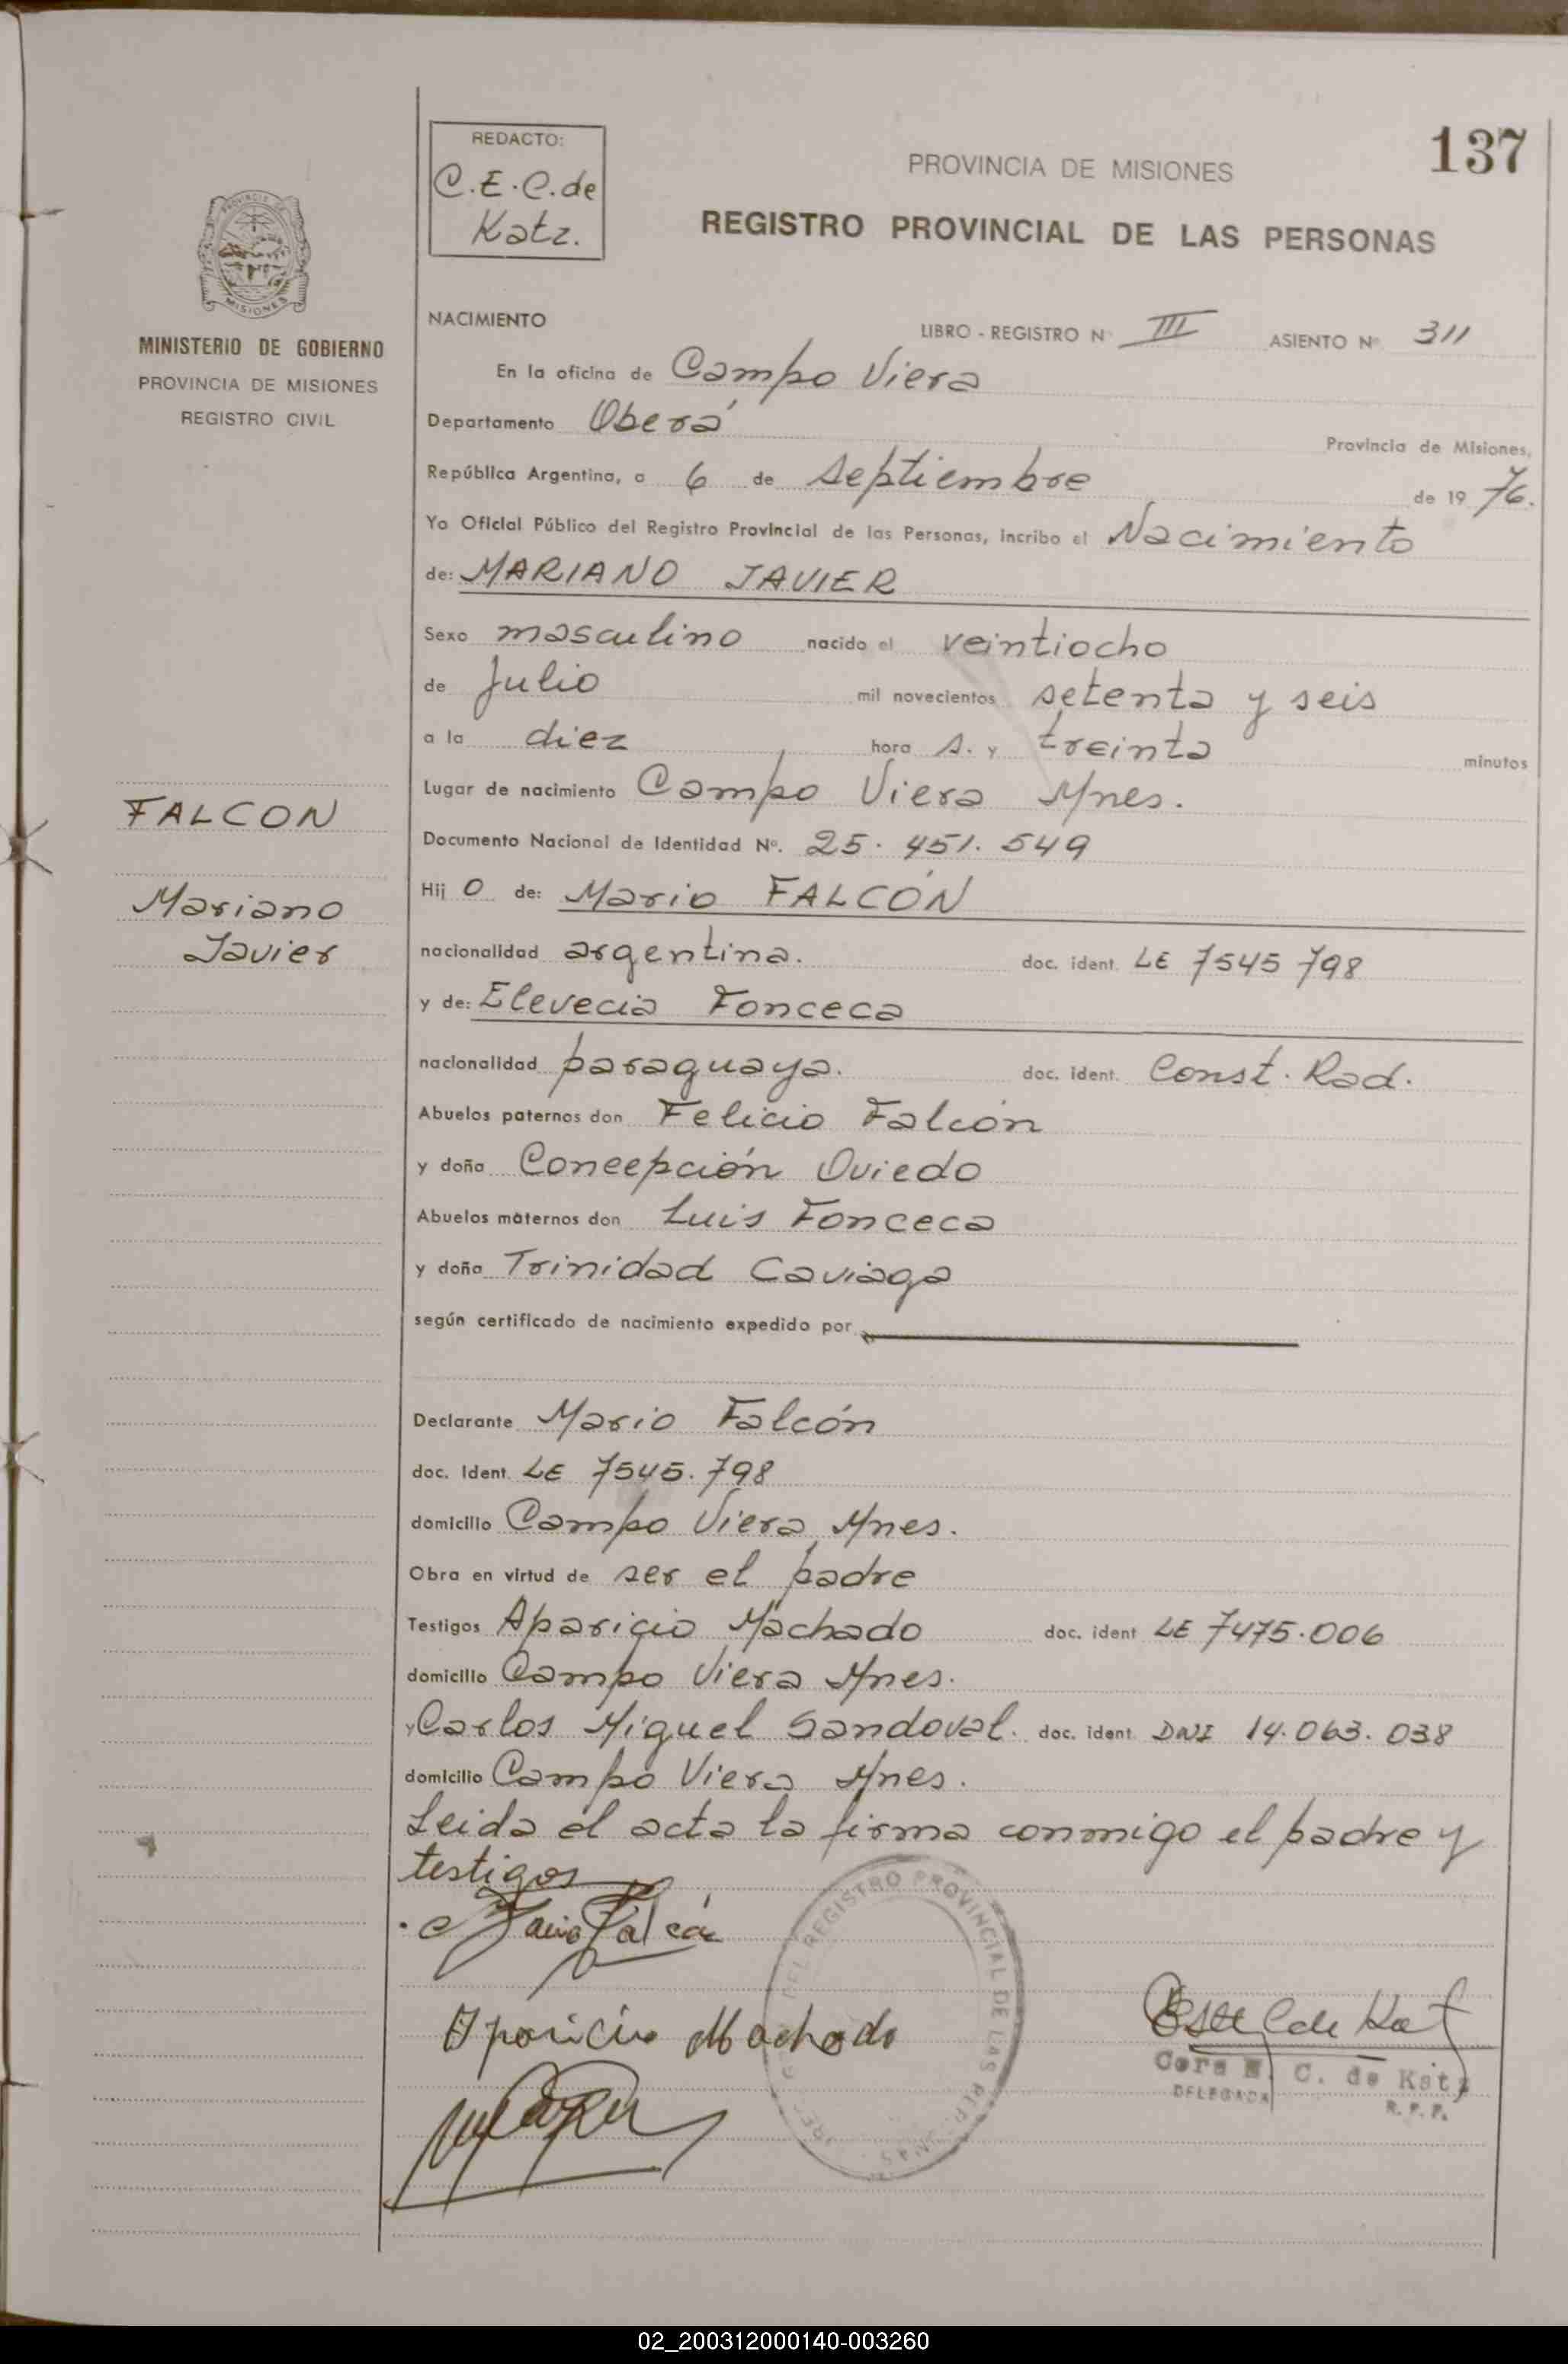 137
REDACTO:
C.E.C. de
Katz.
PROVINCIA DE MISIONES
REGISTRO PROVINCIAL DE LAS PERSONAS
MISIONES
MINISTERIO DE GOBIERNO
PROVINCIA DE MISIONES
REGISTRO CIVIL
NACIMIENTO LIBRO - REGISTRO Nº III ASIENTO Nº 311
En la oficina de Campo Viera
Departamento Oberá Provincia de Misiones,
República Argentina, a 6 de septiembre de 19 76.
Yo Oficial Público del Registro Provincial de las Personas, incribo el Nacimiento
de: MARIANO JAVIER
Sexo masculino nacido el veintiocho
de Julio mil novecientos setenta y seis
a la diez hora s. y treinta minutos
Lugar de nacimiento Campo Viera Mnes.
FALCON
Documento Nacional de Identidad Nº. 25.451.549
Hij o de: Mario FALCÓN
Mariano
Javier
nacionalidad argentina. doc. ident. LE 7545798
y de: Elevecia Fonceca
nacionalidad paraguaya. doc. ident. Const. Rad.
Abuelos paternos don Felicio Falcón
y doña Concepción Oviedo
Abuelos maternos don Luis Fonceca
y doña Trinidad Caviaga
según certificado de nacimiento expedido por
Declarante Mario Falcón
doc. Ident. LE 7545.798
domicilio Campo Viera Mnes.
Obra en virtud de ser el padre
Testigos Aparicio Machado doc. ident LE 7475.006
domicilio Campo Viera Mnes.
y Carlos Miguel Sandoval. doc. ident. DNI 14.063.038
domicilio Campo Viera Mnes.
Leida el acta la firma conmigo el padre y
testigos
Mario Falcón
Aparicio Machado
DEL REGISTRO PROVINCIAL DE LAS PERSONAS
C. de Katz
DELEGADA
R. P. P.
02_200312000140-003260